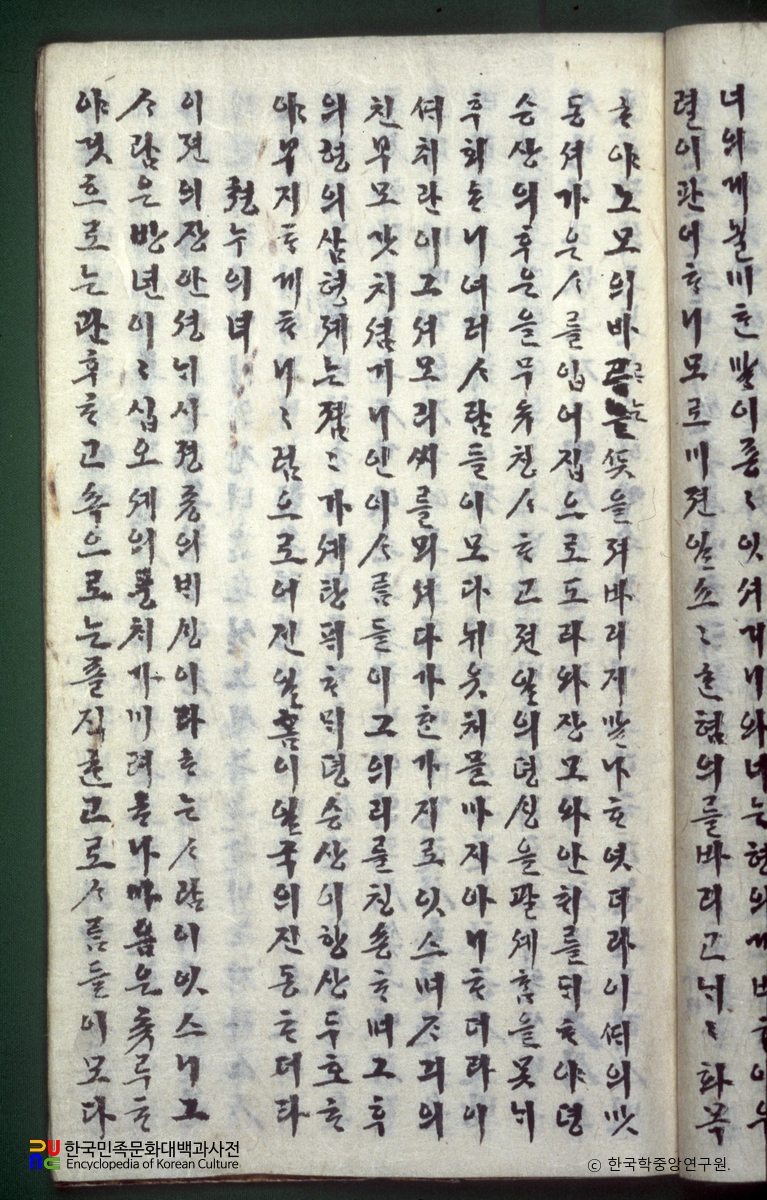 너의게놀니ᄒᆞᆫ말이죵〻잇셔거니와너ᄂᆞᆫ현의게비ᄒᆞ이우
련이관어ᄒᆞ니모르미젼일쇼〻ᄒᆞᆫ혐의를바리고ᄂᆡ〻화목
ᄒᆞ야노모의바ᄅᆞᄂᆞᆫᄯᅳᆺ을져바리지말나ᄒᆞ엿더라이ᄯᆡ의ᄆᆞᆺ
동셔가은ᄉᆞ를입어집으로도라와장모와안ᄒᆡ를ᄃᆡᄒᆞ야뎡
승상의후은을무슈친ᄉᆞᄒᆞ고젼일의뎡셩을팔셰ᄒᆞᆷ을못ᄂᆡ
후회ᄒᆞ니여러ᄉᆞ람들이모다뉘웃쳐믈마지아니ᄒᆞ더라이
ᄯᆡ취란이그셔모리씨를뫼셔다가ᄒᆞᆫ가지로잇스며ᄌᆞ긔의
친부모갓치셤기니인이ᄉᆞ름들이그의리를칭숑ᄒᆞ며그후
의형의삼형졔ᄂᆞᆫ졈〻가셰탕ᄑᆡᄒᆞᄆᆡ뎡승상이항상두호ᄒᆞ
야부지ᄒᆞ게ᄒᆞ니〻럼으로어진일홈이일국의진동ᄒᆞ더라
쳥누의녀
이젼의장안셩ᄂᆡ시졍즁의비셩이라ᄒᆞᄂᆞᆫᄉᆞ람이잇스니그
ᄉᆞ람은방년이〻십오셰의풍ᄎᆡ가미려ᄒᆞ나마음은츄루ᄒᆞ
야것흐로ᄂᆞᆫ관후ᄒᆞ고속으로ᄂᆞᆫ졸직ᄒᆞᆫ고로ᄉᆞ름들이모다
한국민족문화대백과사전
Encyclopedia of Korean Culture
ⓒ 한국학중앙연구원.